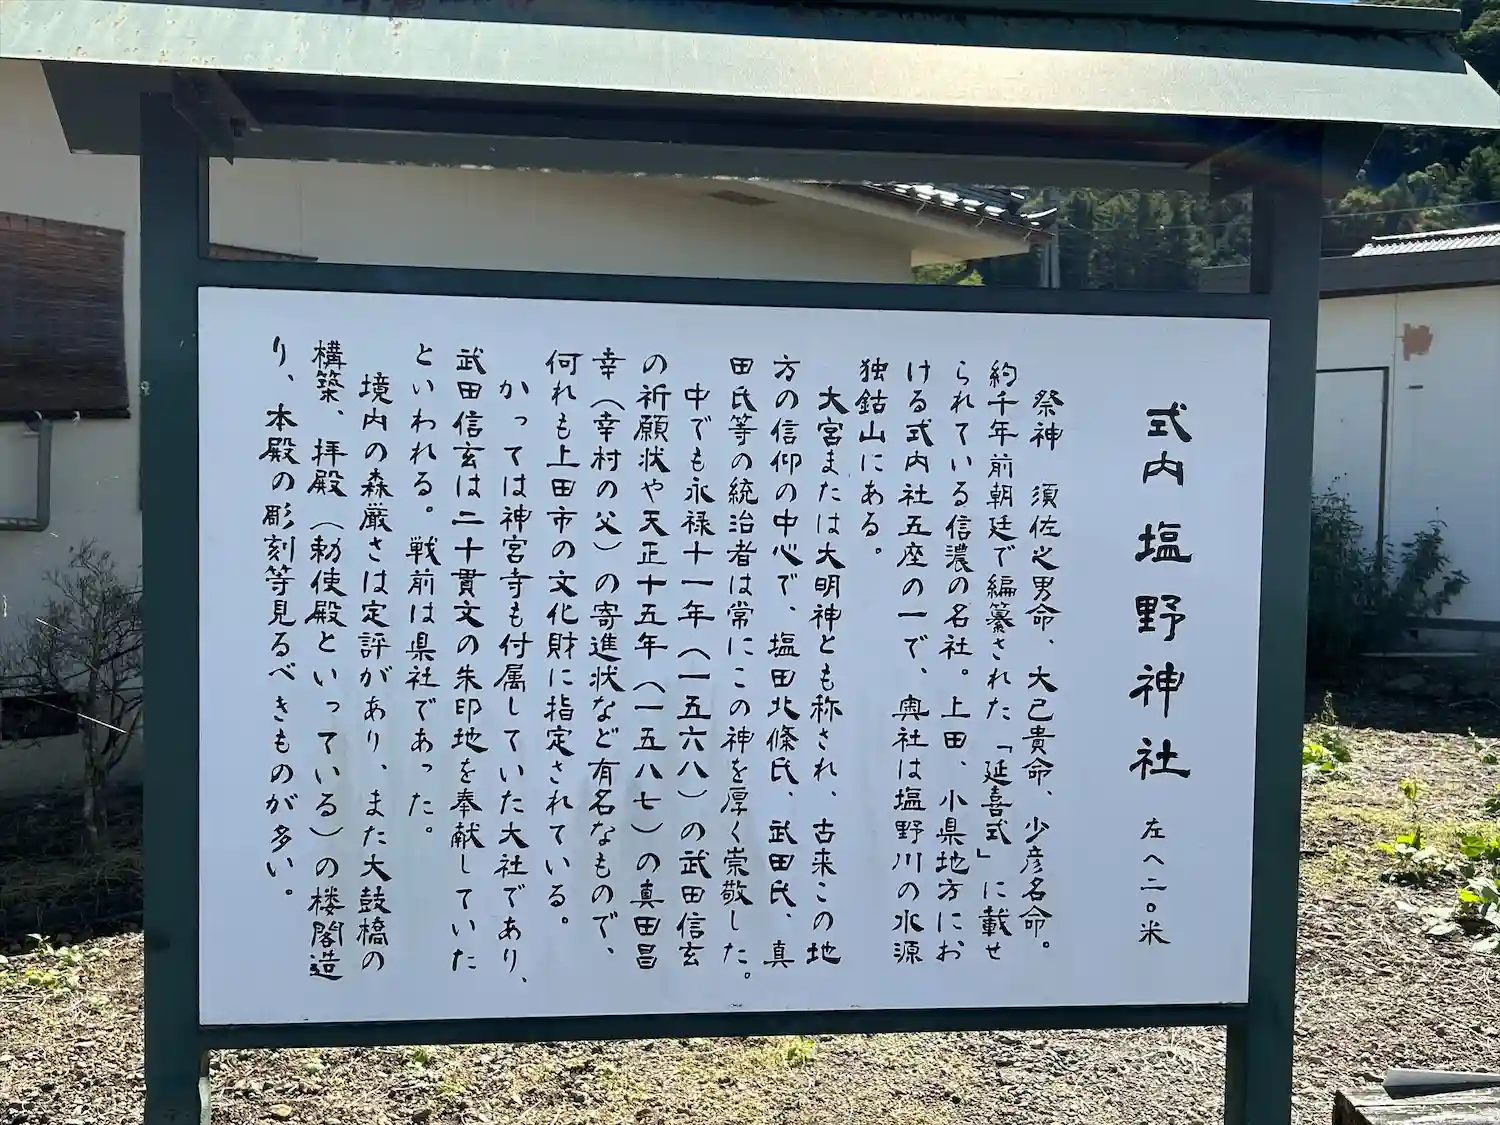 式内 塩野神社 左へ二〇米
祭神 須佐之男命、大己貴命、少彦名命。
約千年前朝廷で編纂された「延喜式」に載せ
られている信濃の名社。上田、小県地方にお
ける式内社五座の一で、奥社は塩野川の水源
独鈷山にある。
大宮または大明神とも称され、古来この地
方の信仰の中心で、塩田北條氏、武田氏、真
田氏等の統治者は常にこの神を厚く崇敬した。
中でも永禄十一年（一五六八）の武田信玄
の祈願状や天正十五年（一五八七）の真田昌
幸（幸村の父）の寄進状など有名なもので、
何れも上田市の文化財に指定されている。
かっては神宮寺も付属していた大社であり、
武田信玄は二十貫文の朱印地を奉献していた
といわれる。戦前は県社であった。
境内の森厳さは定評があり、また大鼓橋の
構築、拝殿（勅使殿といっている）の楼閣造
り、本殿の彫刻等見るべきものが多い。